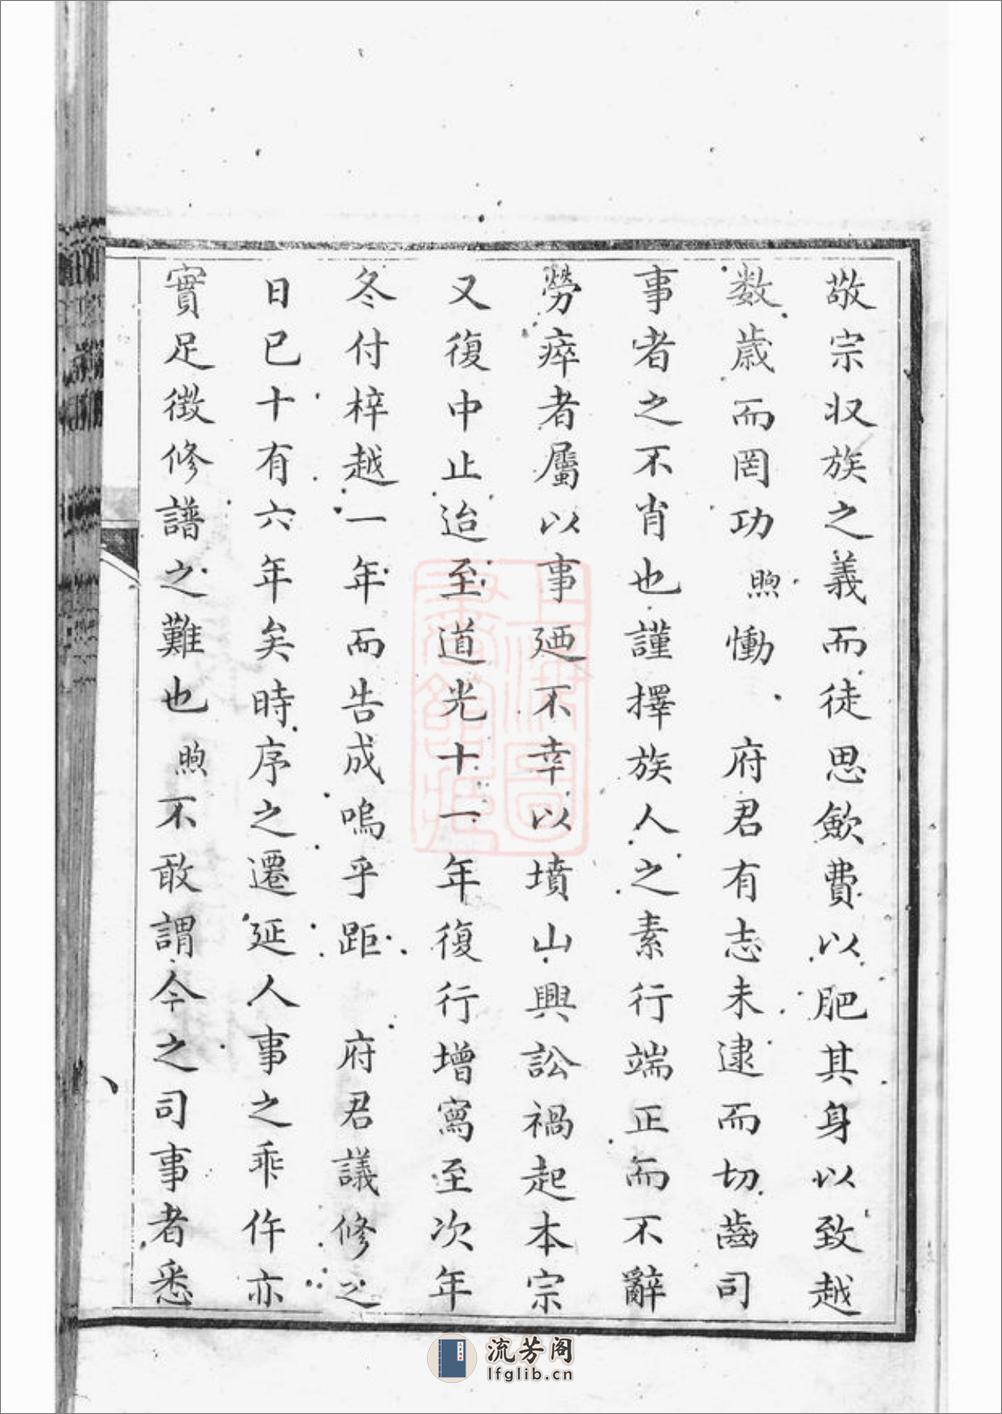 敬宗収族之義而徒思歛費以肥其身以致越
数歳而罔功煦慟 府君有志未逮而切齒司
事者之不肖也謹擇族人之素行端正而不辭
勞瘁者屬以事廼不幸以墳山興訟禍起本宗
又復中止迨至道光十一年復行增寫至次年
冬付梓越一年而告成嗚乎距 府君議修之
日已十有六年矣時序之遷延人事之乖仵亦
實足徴修譜之難也煦不敢謂今之司事者悉
上海圖書館藏
流芳阁
lfglib.cn